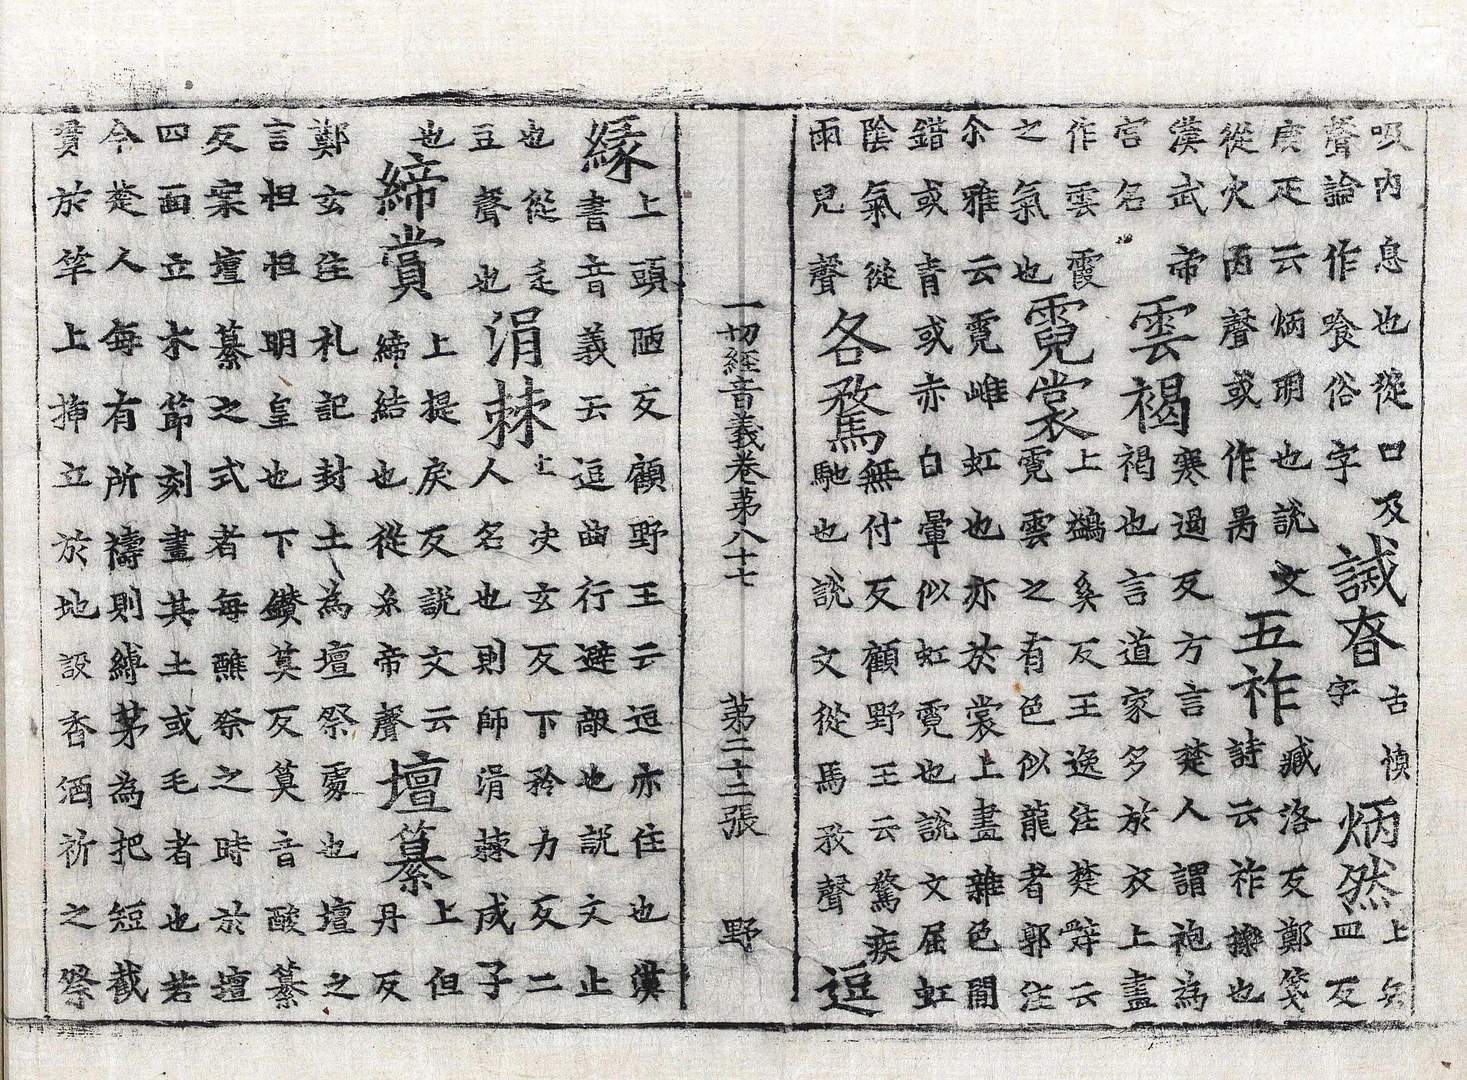 吸內息也從口及
聲論作喰俗字
誡昚
古慎
字
炳然
上兵
皿反
庚疋云炳明也說文
從火丙聲或作昺
五祚
臧洛反鄭箋
詩云祚擽也
漢武帝
宮名
雲褐
寒遏反方言楚人謂袍為
褐也言道家多於衣上畫
作雲霞
之氣也
霓裳
上鷁奚反王逸注楚辭云
霓雲之有色似龍者郭注
尒雅云霓雌虹也亦於裳上畫雜色間
錯或青或赤白暈似虹霓也說文屈虹
陰氣從
雨兒聲
各騖
無付反顧野王云騖疾
馳也說文從馬敄聲
逗
一切經音義卷第八十七 第二十二張 野
縁
上頭陋反顧野王云逗亦住也漢
書音義云逗曲行避敵也說文止
也從辵
豆聲也
涓棘
上決玄反下矜力反二
人名也則師涓蕀成子
也
締賞
上提戾反說文云
締結也從糸帝聲
壇纂
上但
丹反
鄭玄注礼記封土為壇祭處也壇之
言袒袒明皇也下鑚莫反筭音酸纂
反案壇纂之式者每醮祭之時於壇
四面立木節刻畫其土或毛者也若
今楚人每有所禱則縛茅為把短截
貫於竿上揷立於地設香酒祈之祭